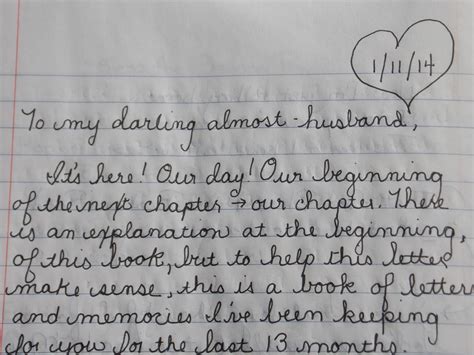 1/11/14
To my darling almost-husband,
It's here! Our day! Our beginning
of the next chapter → our chapter. There
is an explanation at the beginning,
of this book, but to help this letter
make sense, this is a book of letters
and memories I've been keeping
for you for the last 13 months.